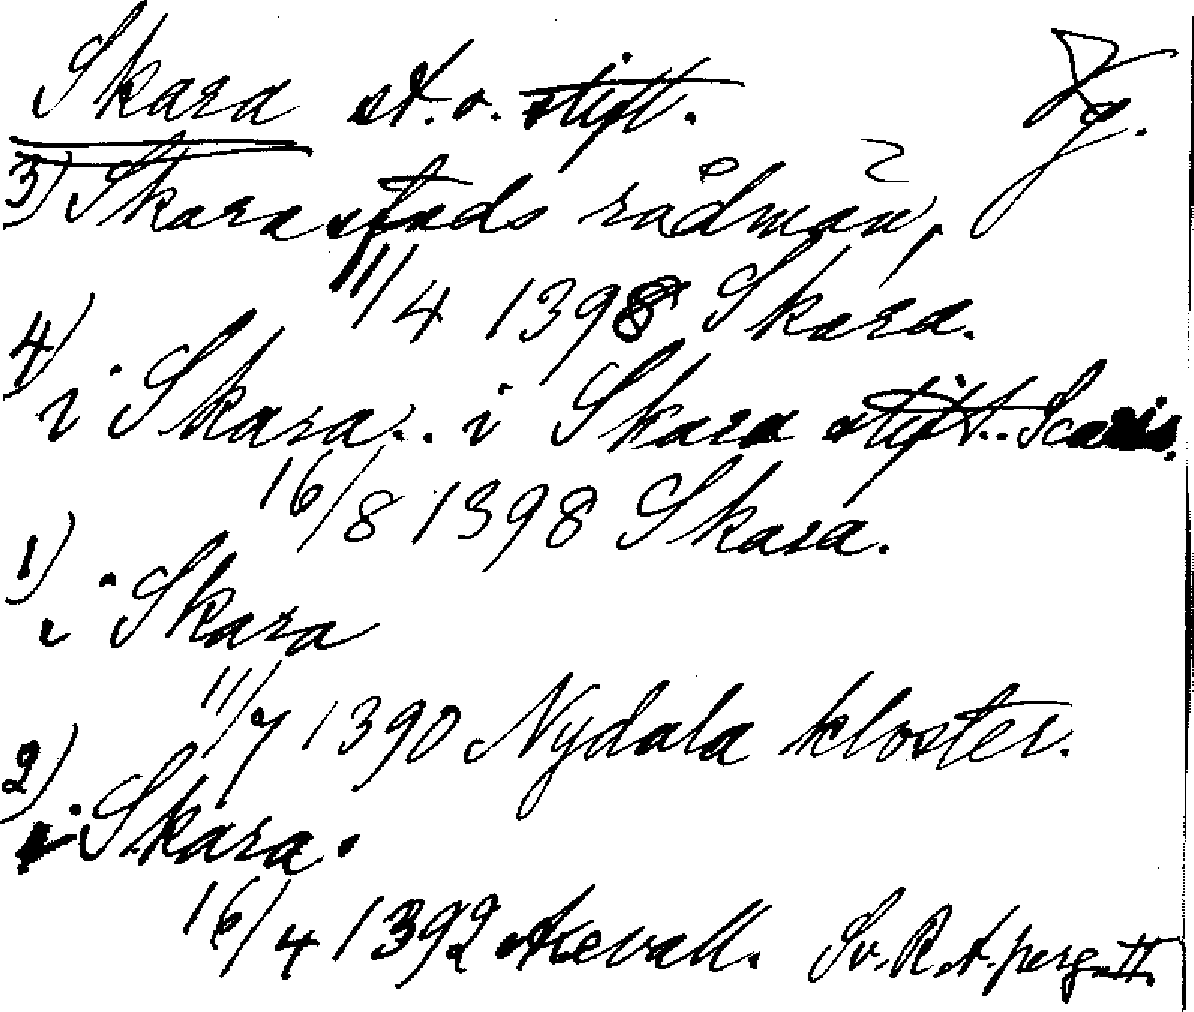 Skara st. o. stift. Vg.
3) Skara stads rådman,
11/4 1398 Skara.
4)
i Skara.. i Skara stift.. Scaris.
16/8 1398 Skara.
1)
i Skara
11/7 1390 Nydala kloster.
2)
i Skara.
16/4 1392 Axevall. Sv. R. A. perg.